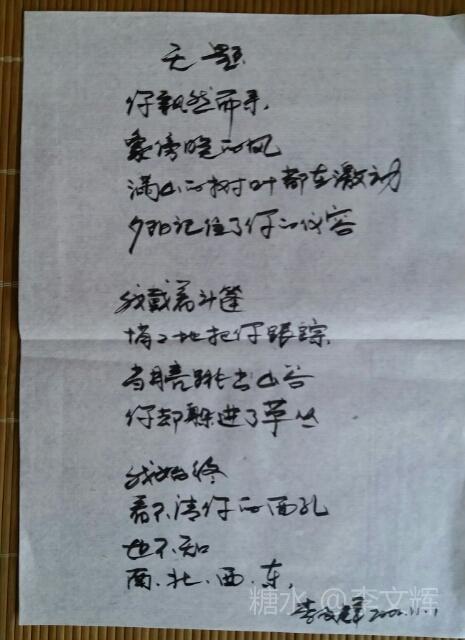 无题
你飘然而来,
象傍晚的风
满山的树叶都在激动
夕阳记住了你的仪容
我戴着斗篷
悄々地把你跟踪
当月亮跳出山谷
你却躲进了草丛
我始终
看不清你的面孔
也不知
南、北、西、东。
李文辉
糖水 @李文辉